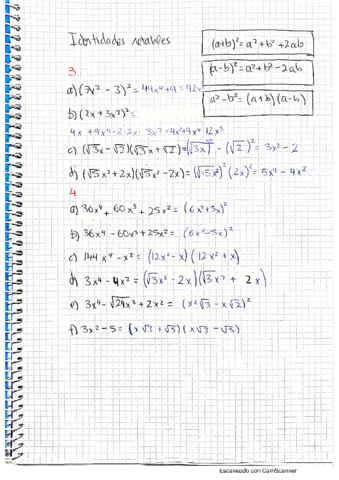 Identidades notables
(a+b)² = a²+b²+2ab
(a-b)² = a²+b²-2ab
a²-b² = (a+b)(a-b)
3
a) (7x² - 3)² = 49x⁴+9 = 42x
b) (2x + 3x²)² =
4x + 9x⁴ + 2·2x · 3x² = 4x²+9x⁴ 12x³
c) (√3x - √2)(√3x + √2) = (√3x)² - (√2)² = 3x² - 2
d) (√5x² + 2x)(√5x² - 2x) = (√5x²)² (2x)² = 5x⁴ - 4x²
4
a) 36x⁴ + 60x³ + 25x² = (6x²+5x)²
b) 36x⁴ - 60x³ + 25x² = (6x²-5x)²
c) 144x⁴ - x² = (12x² - x)(12x² + x)
d) 3x⁴ - 4x² = (√3x² - 2x)(√3x² + 2x)
e) 3x⁴ - √24x³ + 2x² = (x²√3 - x√2)²
f) 3x² - 5 = (x√3 + √5)(x√3 - √5)
Escaneado con CamScanner